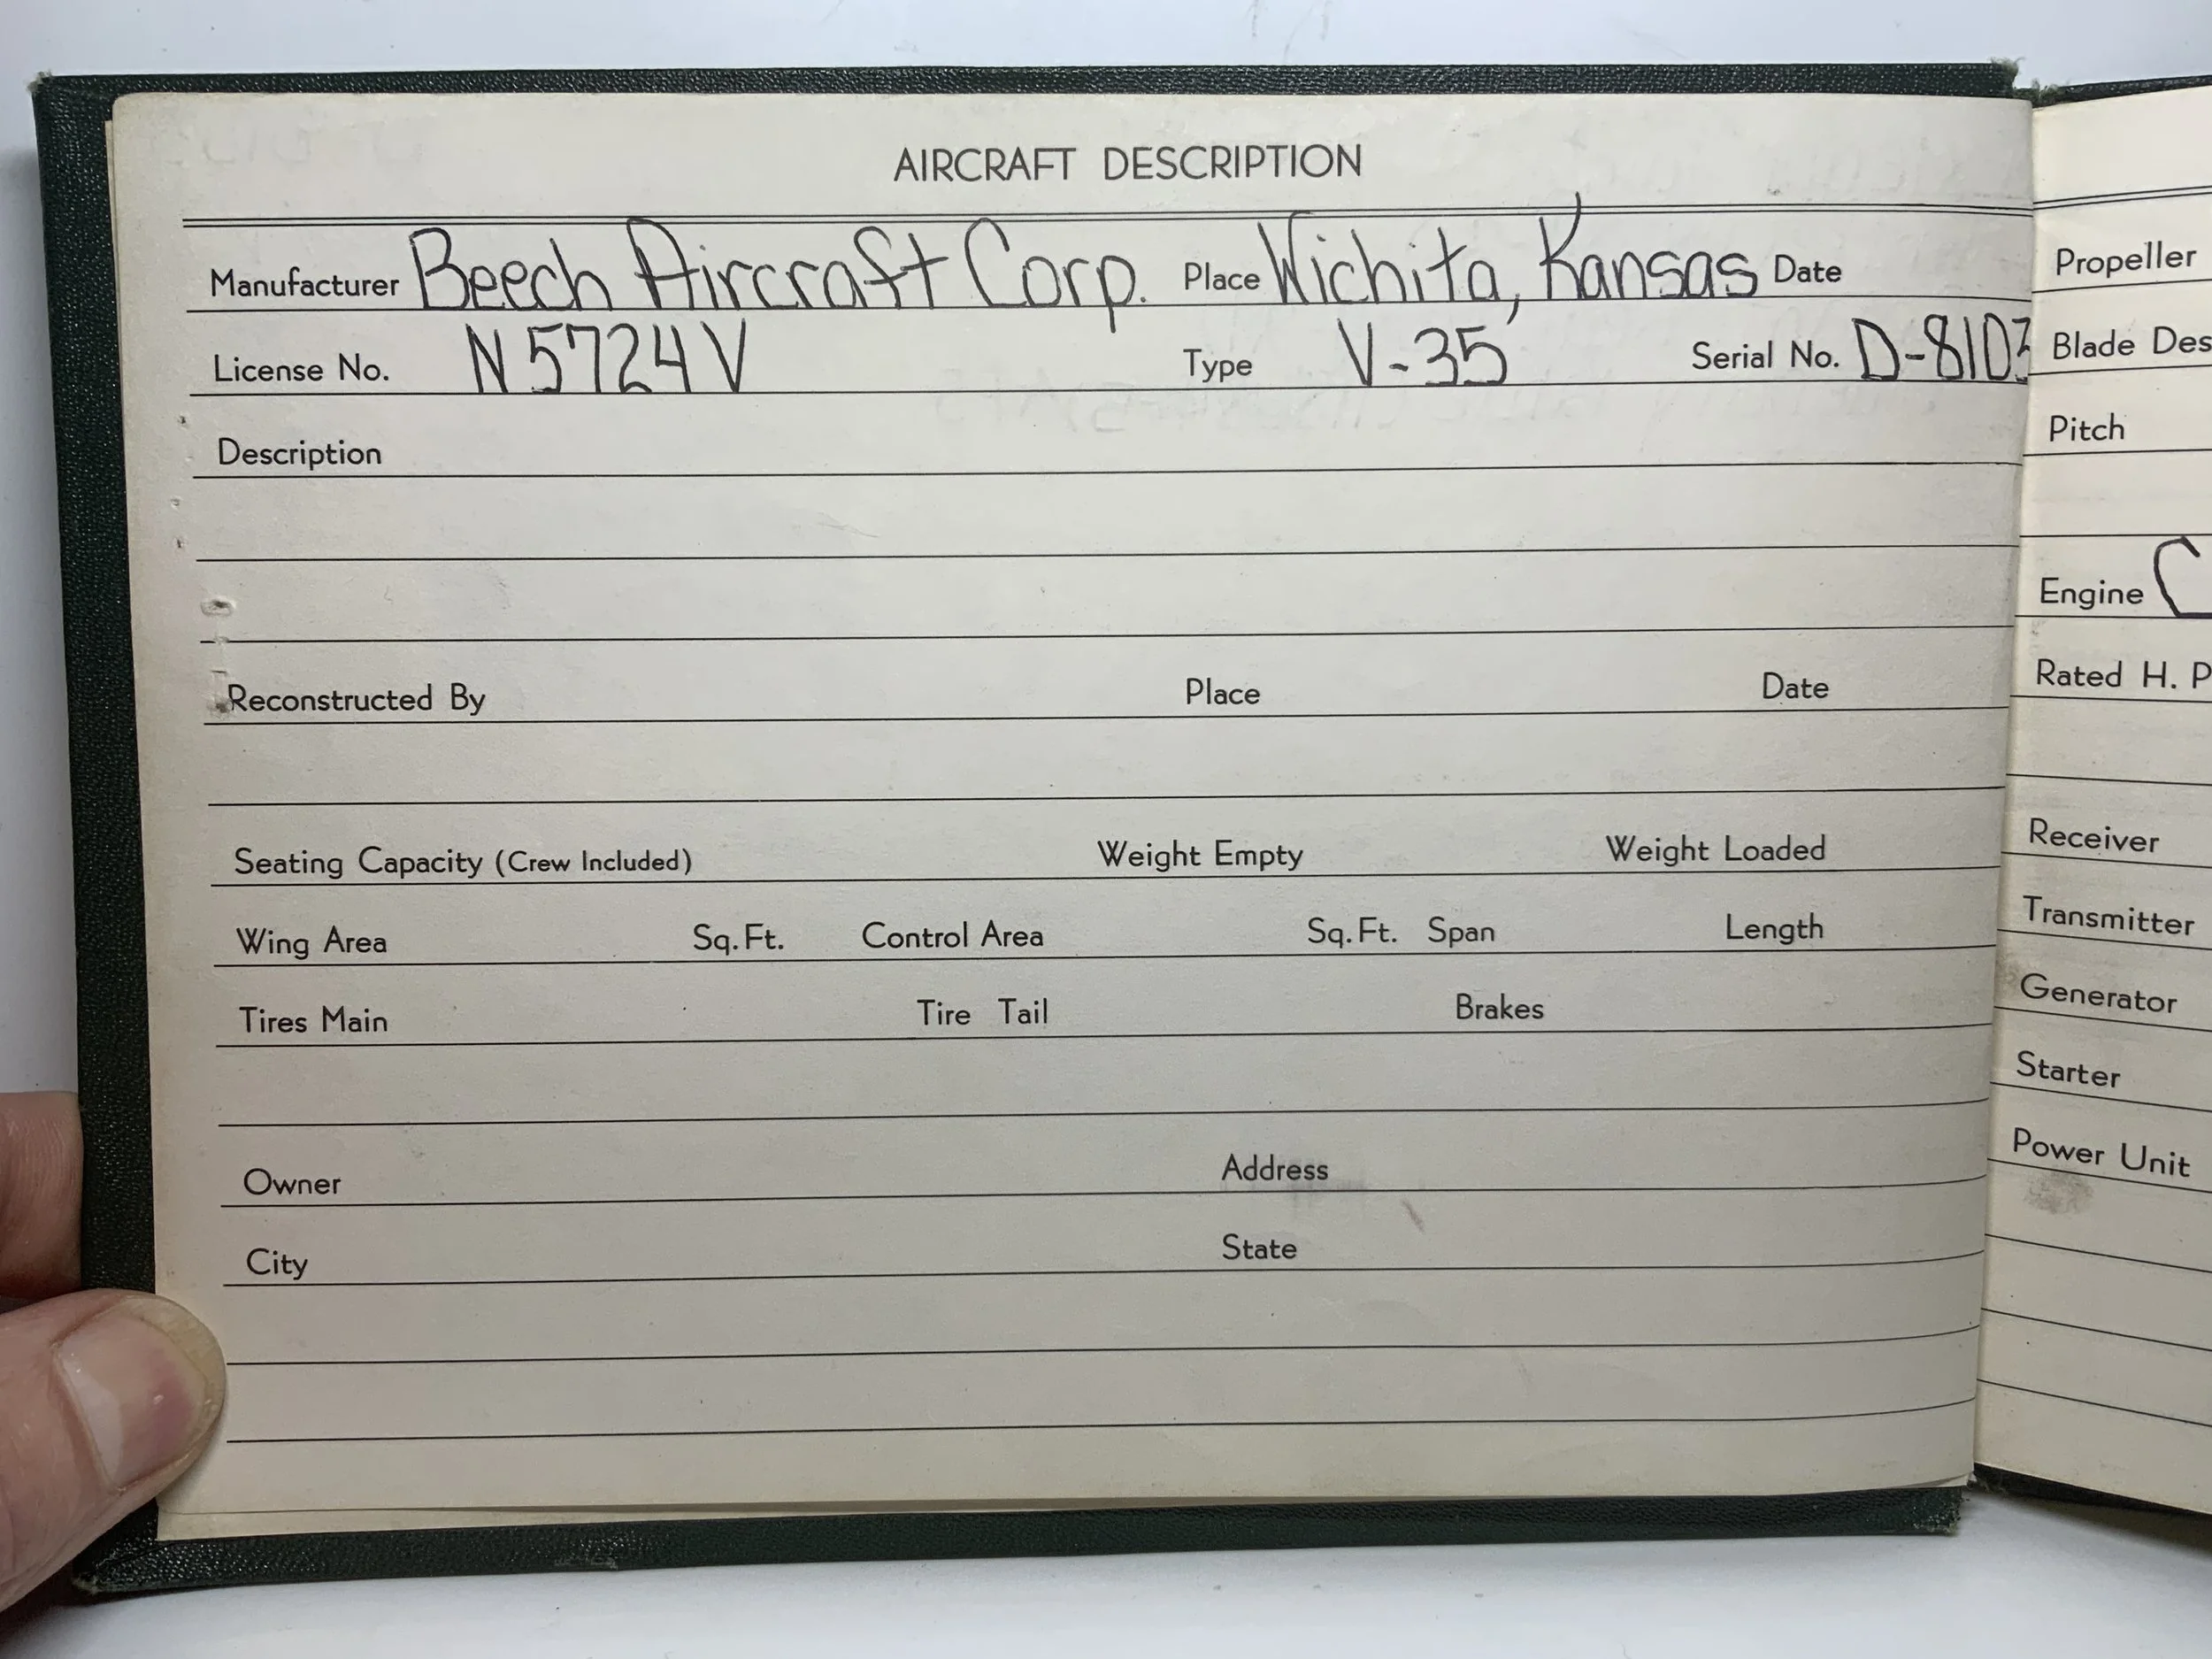 AIRCRAFT DESCRIPTION
Manufacturer Beech Aircraft Corp. Place Wichita, Kansas Date
License No. N5724V Type V-35 Serial No. D-8103
Description
Reconstructed By Place Date
Seating Capacity (Crew Included) Weight Empty Weight Loaded
Wing Area Sq. Ft. Control Area Sq. Ft. Span Length
Tires Main Tire Tail Brakes
Owner Address
City State
Propeller
Blade Des
Pitch
Engine C
Rated H. P
Receiver
Transmitter
Generator
Starter
Power Unit